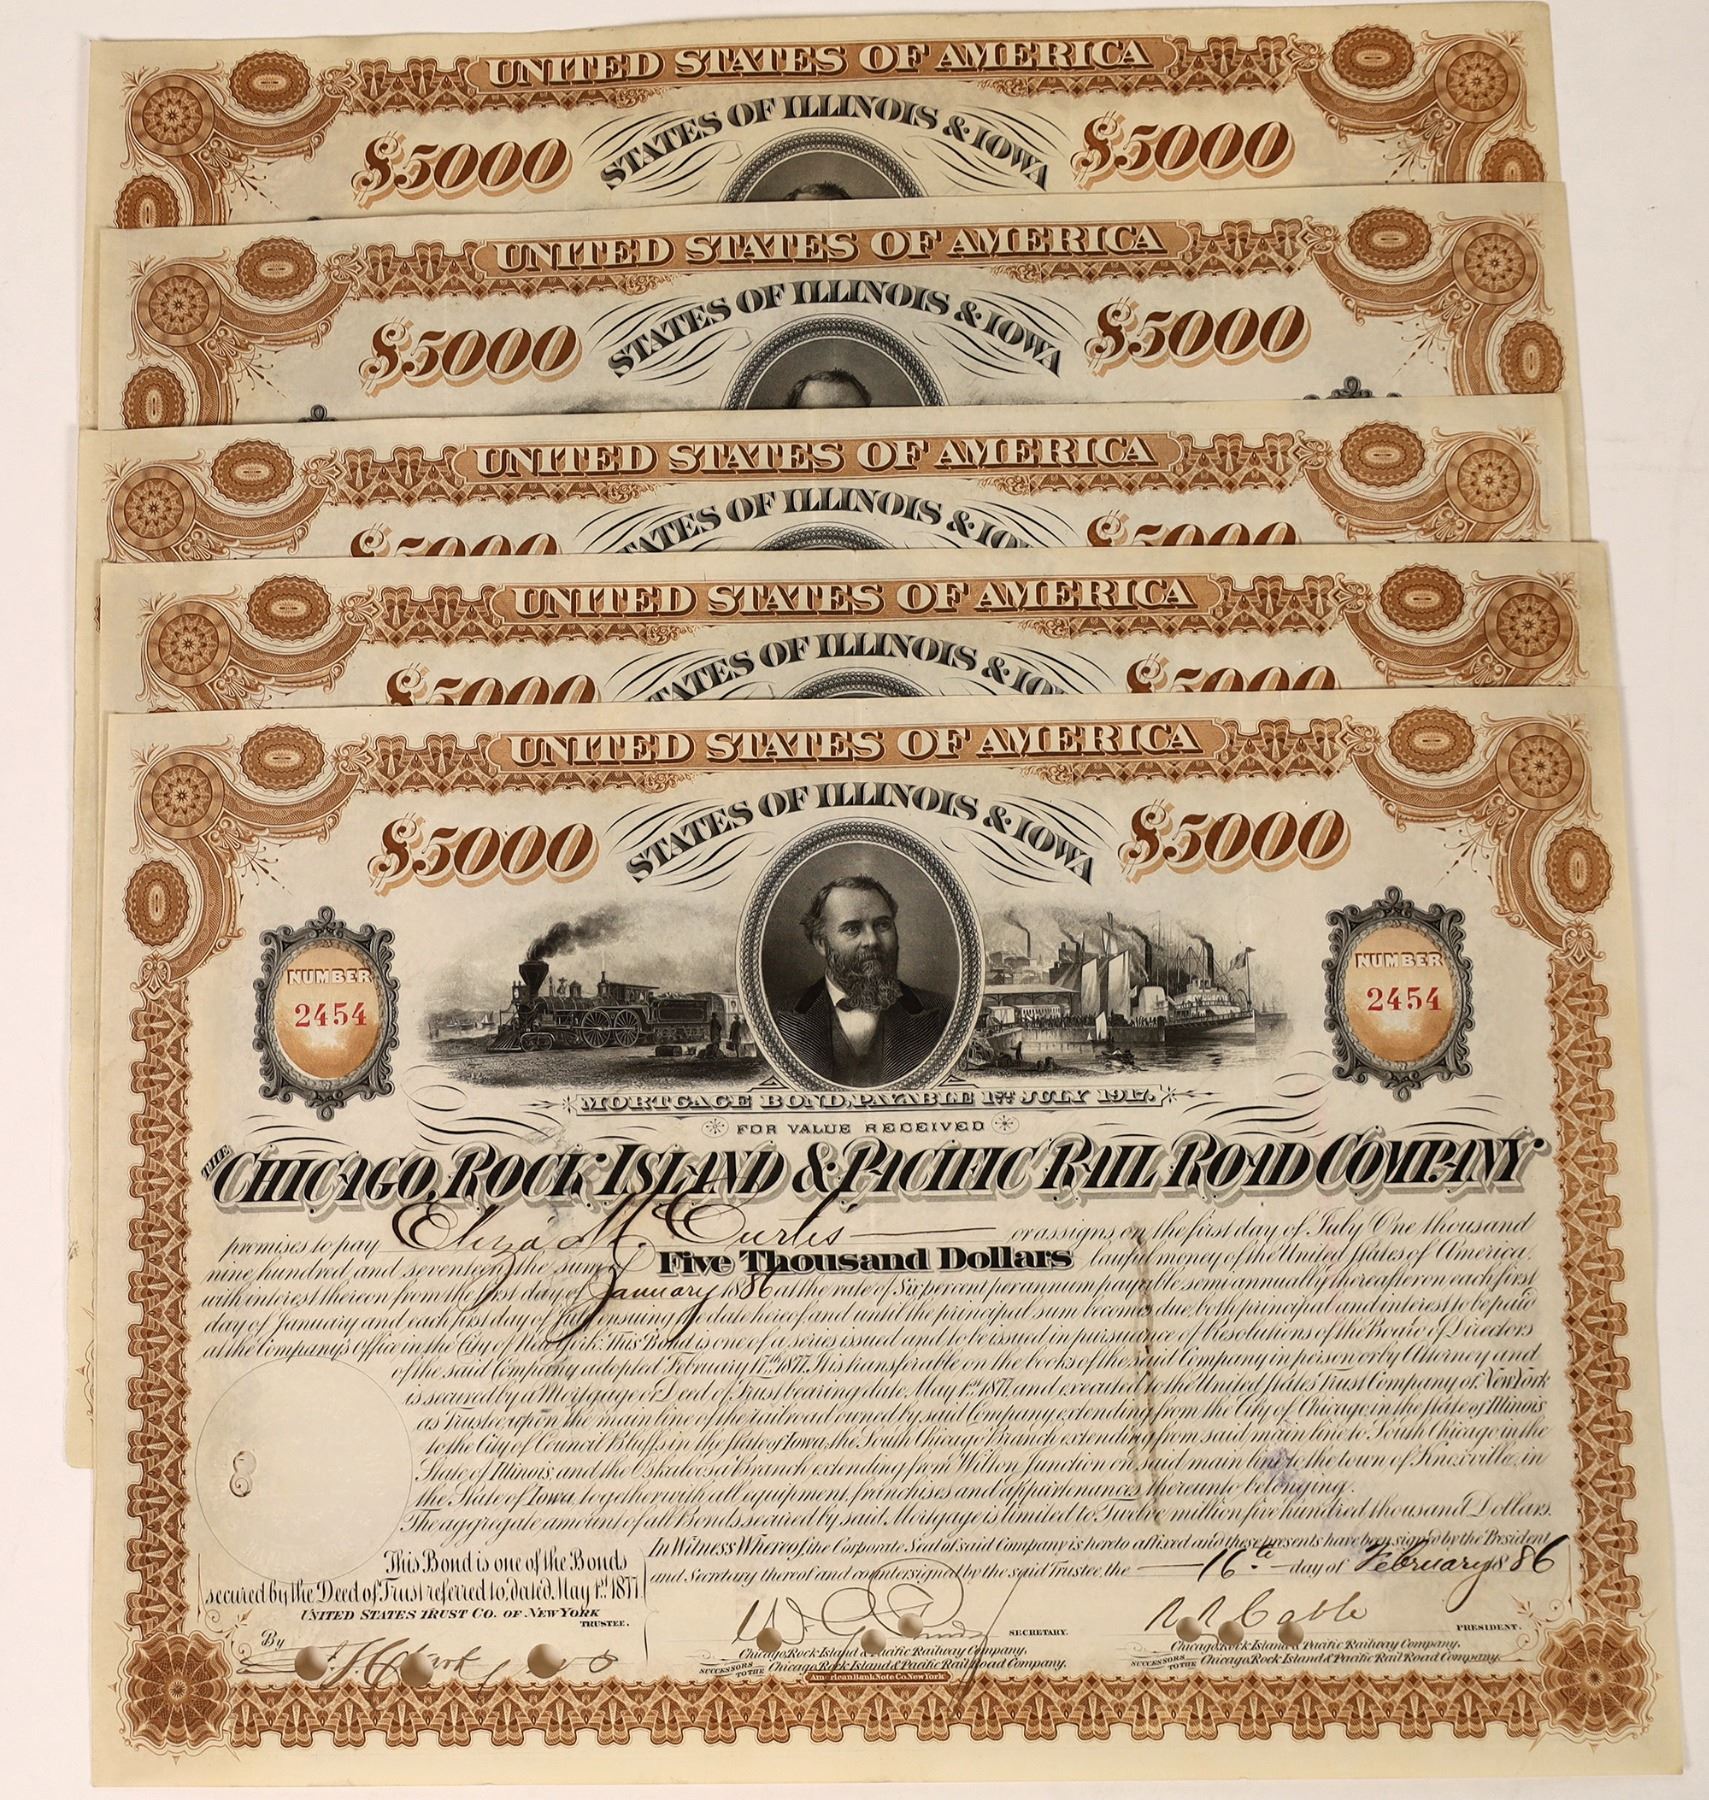 UNITED STATES OF AMERICA
STATES OF ILLINOIS & IOWA
$5000 $5000
UNITED STATES OF AMERICA
STATES OF ILLINOIS & IOWA
$5000 $5000
UNITED STATES OF AMERICA
STATES OF ILLINOIS &
$5000 $5000
UNITED STATES OF AMERICA
STATES OF ILLINOIS &
$5000 $5000
UNITED STATES OF AMERICA
STATES OF ILLINOIS & IOWA
$5000 $5000
NUMBER 2454
NUMBER 2454
MORTGAGE BOND, PAYABLE 1ST JULY 1917.
FOR VALUE RECEIVED
THE CHICAGO, ROCK ISLAND & PACIFIC RAIL ROAD COMPANY
promises to pay Eliza M. Curtis or assigns, on the first day of July One thousand
nine hundred and seventeen, the sum of Five Thousand Dollars lawful money of the United States of America,
with interest thereon from the first day of January 1886 at the rate of Six per cent per annum payable semi annually thereafter on each first
day of January and each first day of July ensuing the date hereof and until the principal sum becomes due, both principal and interest to be paid
at the Company's Office in the City of New York. This Bond is one of a series issued and to be issued in pursuance of Resolutions of the Board of Directors
of the said Company adopted February 17th 1877. It is transferable on the books of the said Company in person or by Attorney and
is secured by a Mortgage or Deed of Trust bearing date May 1st 1877, and executed to the United States Trust Company of New York
as Trustee, upon the main line of the railroad owned by said Company extending from the City of Chicago, in the State of Illinois
to the City of Council Bluffs in the State of Iowa, the South Chicago Branch extending from said main line to South Chicago in the
State of Illinois, and the Oskaloosa Branch extending from Wilton Junction on said main line to the town of Knoxville, in
the State of Iowa, together with all equipment, franchises and appurtenances thereunto belonging.
The aggregate amount of all Bonds secured by said Mortgage is limited to Twelve million five hundred thousand Dollars.
In Witness Whereof, the Corporate Seal of said Company is hereto affixed and these presents have been signed by the President
and Secretary thereof and countersigned by the said Trustee, the 16th day of February 1886
This Bond is one of the Bonds
secured by the Deed of Trust referred to, dated May 1st 1877.
UNITED STATES TRUST CO. OF NEW YORK
TRUSTEE.
By
SECRETARY.
Chicago, Rock Island & Pacific Railway Company,
SUCCESSORS TO THE Chicago, Rock Island & Pacific Rail Road Company.
R R Cable PRESIDENT.
Chicago, Rock Island & Pacific Railway Company,
SUCCESSORS TO THE Chicago, Rock Island & Pacific Rail Road Company.
American Bank Note Co. New York